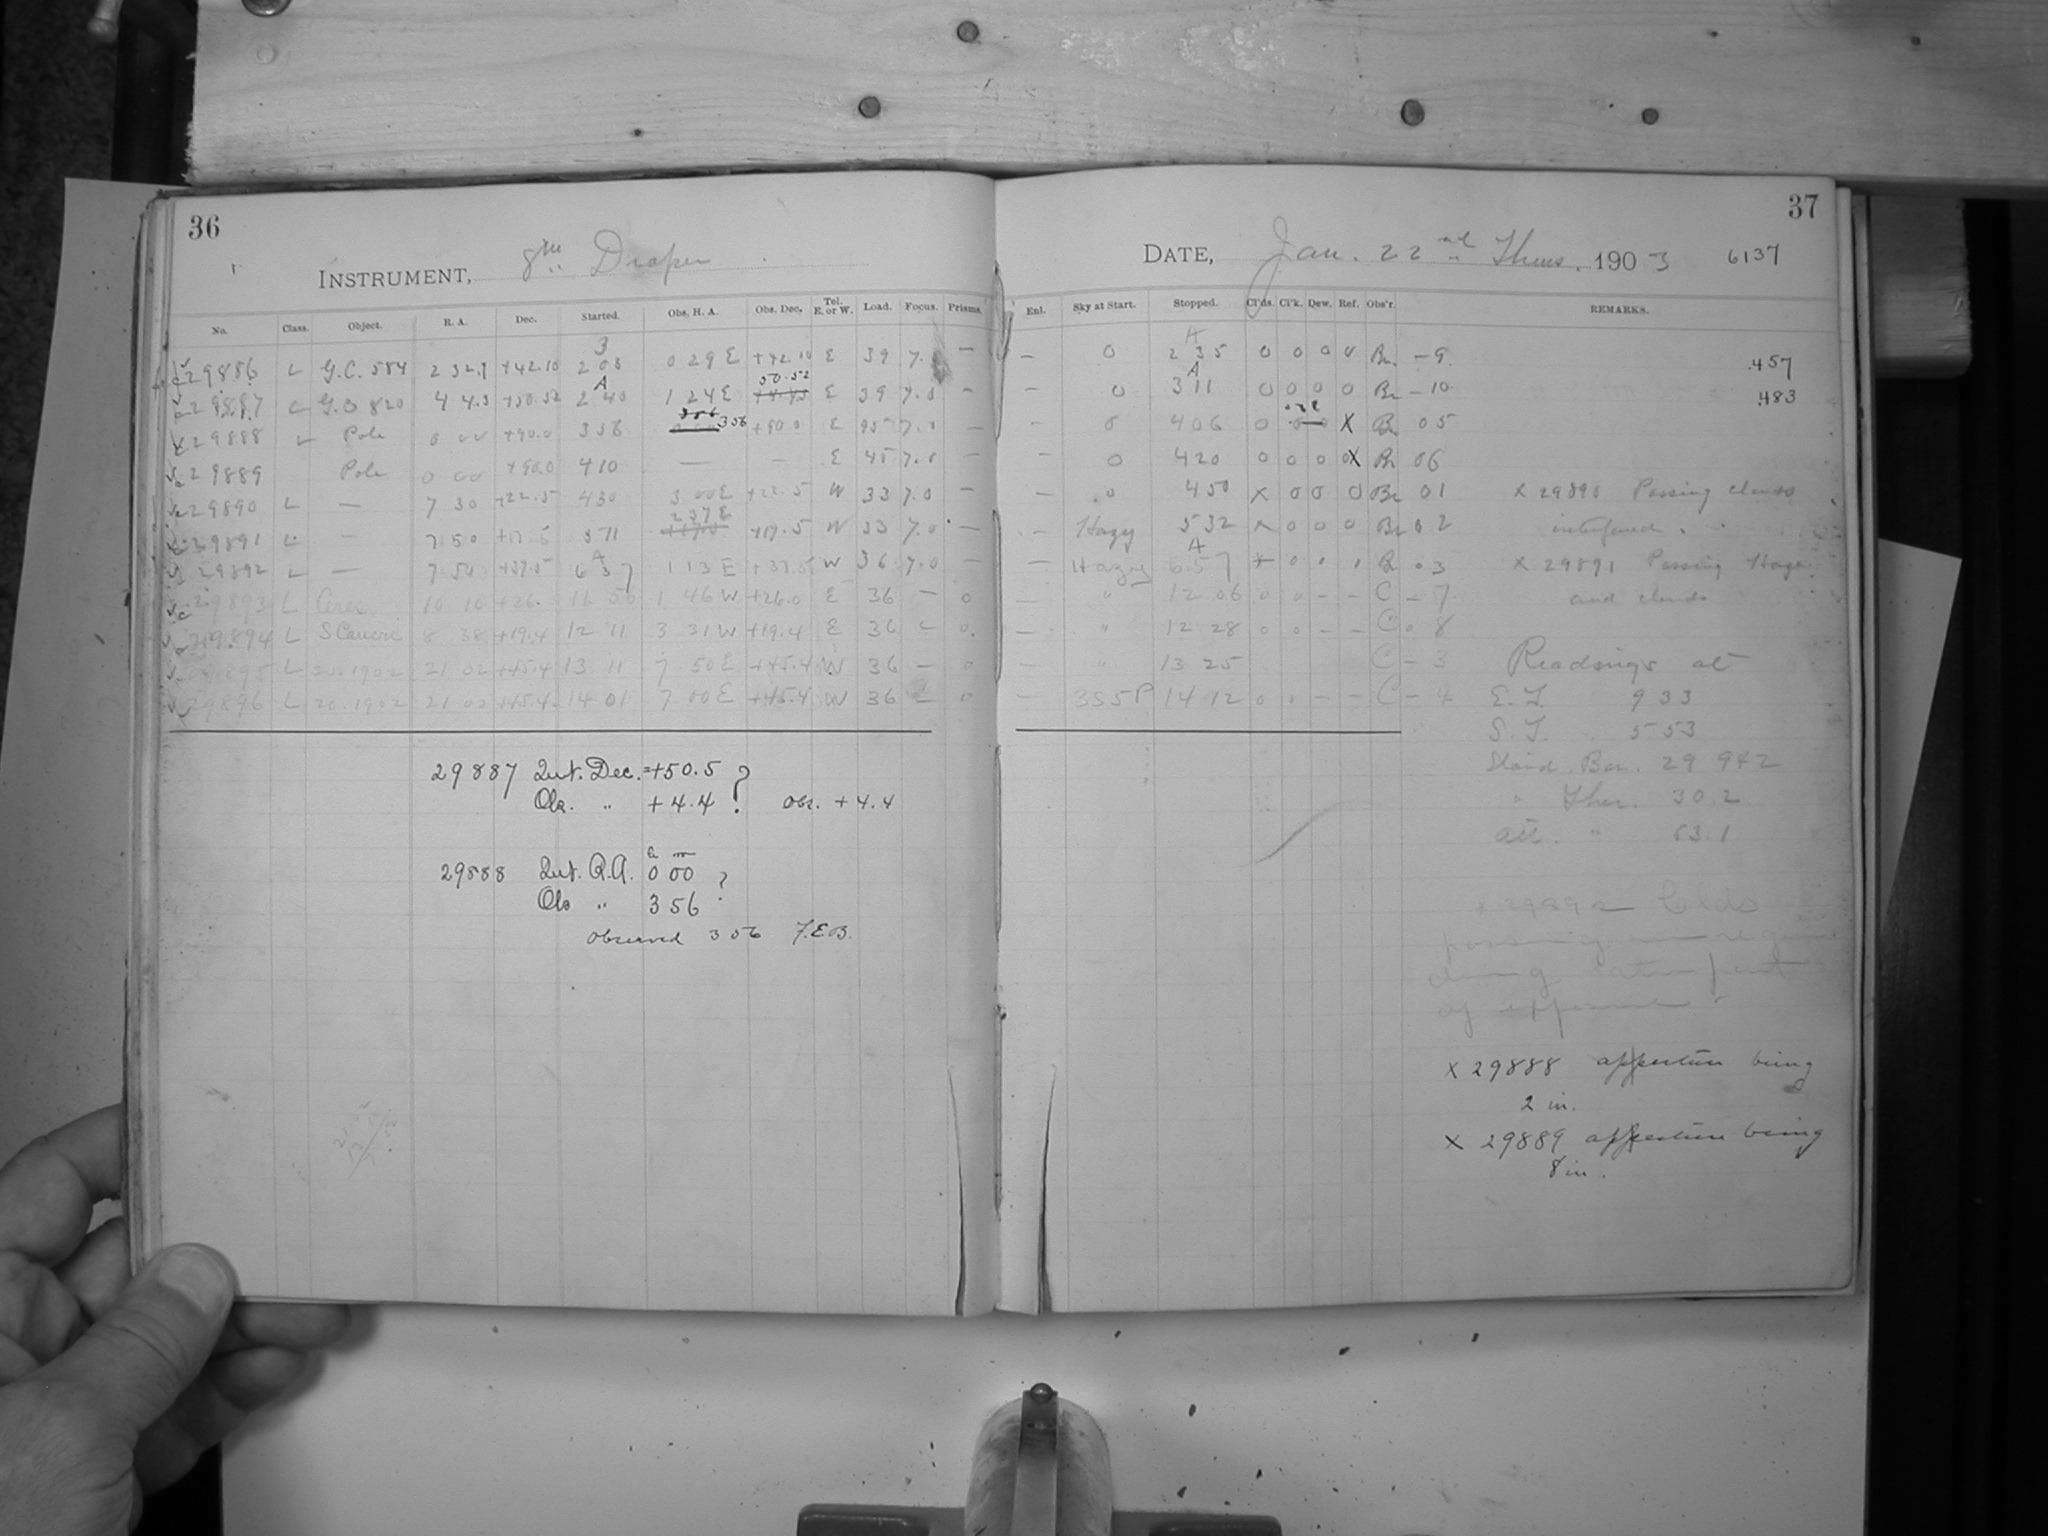 36
INSTRUMENT, 8 in Draper
No. Class. Object. R. A. Dec. Started. Obs. H. A. Obs. Dec. Tel. E. or W. Load. Focus. Prisms.
29886 L G.C. 584 2 32.9 +42.10 2 03 0 29 E +42.10 E 39 7. —
29887 L G.C 820 4 4.3 +50.52 2 40 1 24 E 50.52 E 39 7.0 —
29888 L Pole 0 00 +90.0 356 356 +90 0 E 7.0 —
29889 Pole 0 00 +90.0 410 — — E 45 7.0
29890 L — 7 30 +22.5 430 3 00 E +22.5 W 33 7.0 —
29891 L — 7 50 +17.5 511 2 37 E W 33 7.0 —
29892 L — 7 50 +37.5 6 37 1 13 E +37.5 W 36 7.0 —
29893 L 10 10 +26. 11 50 1 46 W +26.0 E 36 — 0
29894 L S Cancri 8 38 +19.4 12 11 3 31 W +19.4 E 36 0
29895 L 20.1902 21 02 +45.4 13 11 7 50 E +45.4 W 36 — 0
29896 L 20.1902 21 02 +45.4 14 01 7 00 E +45.4 W 36 — 0
29887 Int. Dec. = +50.5 ?
Obs. " +4.4 Obs. +4.4
29888 Int. R.A. h m 0 00 ?
Obs " 3 56
Observed 3 56 F.E.B.
37
DATE, Jan. 22nd Thurs. 1903 6137
Enl. Sky at Start. Stopped. Cl'ds. Cl'k. Dew. Ref. Obs'r. REMARKS.
— 0 2 35 0 0 0 0 Br. -9 .457
— 0 3 11 0 0 0 0 Br -10 .483
— 0 406 0 X Br 05
— 0 420 0 0 0 X Br 06
— 0 450 X 0 0 0 Br 01 X 29890 Passing clouds
— Hazy 532 X 0 0 0 Br 02 interfered.
— Hazy 6.57 0 Br 03 X 29891 Passing Haze
— " 12 06 0 0 — — C - 7 and clouds
— " 12 28 0 0 — — C 8
— " 13 25 C - 3 Readings at
— 3S5P 14 12 0 0 — — C - 4 E.T. 9 33
S.T. 5 53
Stand. Bar. 29 942
" Ther. 30.2
Att. " 63.1
X 29892 Clds
passing
during latter part
of exposure.
X 29888 apperture being
2 in.
X 29889 apperture being
8 in.